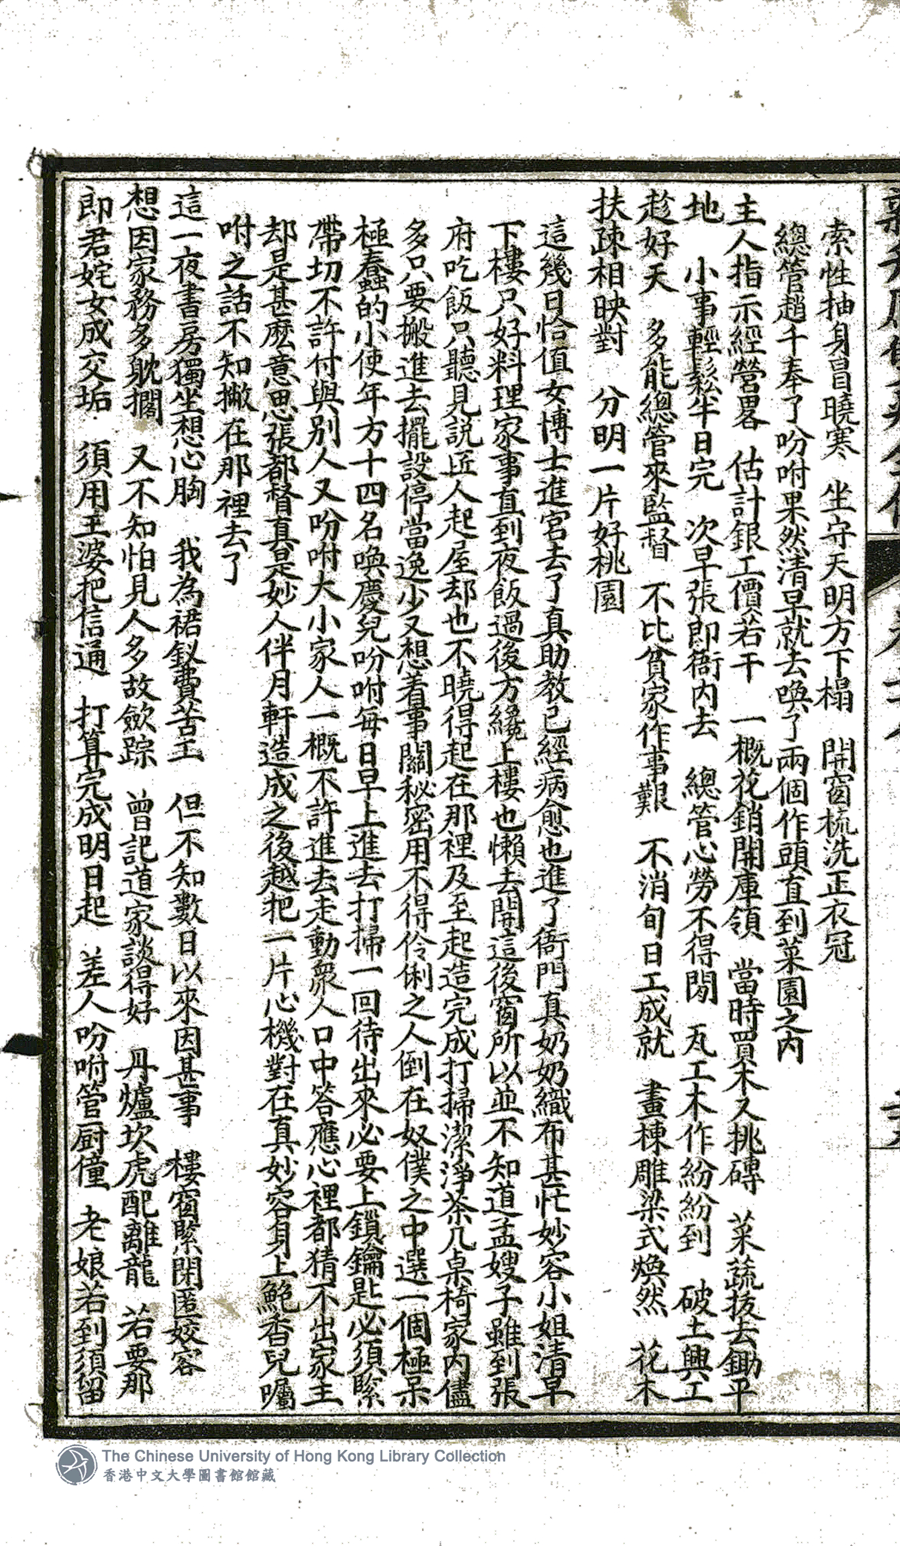 索性抽身冒曉寒　坐守天明方下榻　開窗梳洗正衣冠
總管趙千奉了吩咐果然清早就去喚了兩個作頭直到菜園之內
主人指示經營畧　估計銀工價若干　一概花銷開庫領　當時買木又挑磚　菜蔬拔去鋤平
地　小事輕鬆半日完　次早張郎衙內去　總管心勞不得閒　瓦工木作紛紛到　破土興工
趁好天　多能總管來監督　不比貧家作事艱　不消旬日工成就　畫棟雕梁式煥然　花木
扶疎相映對　分明一片好桃園
這幾日恰值女博士進宮去了真助教已經病愈也進了衙門真奶奶織布甚忙妙容小姐清早
下樓只好料理家事直到夜飯過後方纔上樓也懶去開這後窗所以並不知道孟嫂子雖到張
府吃飯只聽見說匠人起屋却也不曉得起在那裡及至起造完成打掃潔淨茶几桌椅家內儘
多只要搬進去擺設停當逸少又想着事關秘密用不得伶俐之人倒在奴僕之中選一個極呆
極蠢的小使年方十四名喚慶兒吩咐每日早上進去打掃一回待出來必要上鎖鑰匙必須緊
帶切不許付與別人又吩咐大小家人一概不許進去走動衆人口中答應心裡都猜不出家主
却是甚麽意思張都督真是妙人伴月軒造成之後越把一片心機對在真妙容身上鮑香兒囑
咐之話不知撇在那裡去了
這一夜書房獨坐想心胸　我為裙釵費苦工　但不知數日以來因甚事　樓窗緊閉匿姣容
想因家務多躭擱　又不知怕見人多故歛踪　曾記道家談得好　丹爐坎虎配離龍　若要那
郎君姹女成交垢　須用王婆把信通　打算完成明日起　差人吩咐管厨僮　老娘若到須留
The Chinese University of Hong Kong Library Collection
香港中文大學圖書館館藏